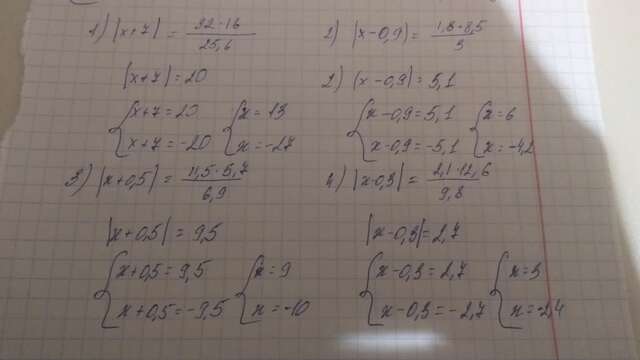 1) |x+7| = 32·16 / 25,6
|x+7| = 20
{ x+7 = 20 { x = 13
x+7 = -20 x = -27
2) |x-0,9| = 1,8·8,5 / 3
2) |x-0,9| = 5,1
{ x-0,9 = 5,1 { x = 6
x-0,9 = -5,1 x = -4,2
3) |x+0,5| = 11,5·5,7 / 6,9
|x+0,5| = 9,5
{ x+0,5 = 9,5 { x = 9
x+0,5 = -9,5 x = -10
4) |x-0,3| = 2,1·12,6 / 9,8
|x-0,3| = 2,7
{ x-0,3 = 2,7 { x = 3
x-0,3 = -2,7 x = -2,4